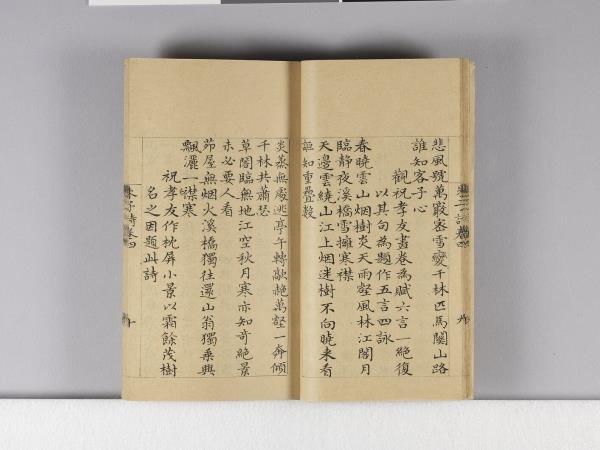 悲風號萬竅密雪變千林匹馬關山路
誰知客子心
觀祝孝友畫卷為賦六言一絶復
以其句為題作五言四詠
春曉雲山烟樹炎天雨壑風林江閣月
臨静夜溪橋雪擁寒襟
天邊雲繞山江上烟迷樹不向曉来看
詎知重疊數
炎蒸無處逃亭午轉歊赩萬壑一奔傾
千林共蕭瑟
草閣臨無地江空秋月寒亦知奇絶景
未必要人看
茆屋無烟火溪橋獨往還山翁獨乗興
飄灑一襟寒
祝孝友作枕屏小景以霜餘茂樹
名之因題此詩
朱子詩卷四
九
朱子詩卷四
十